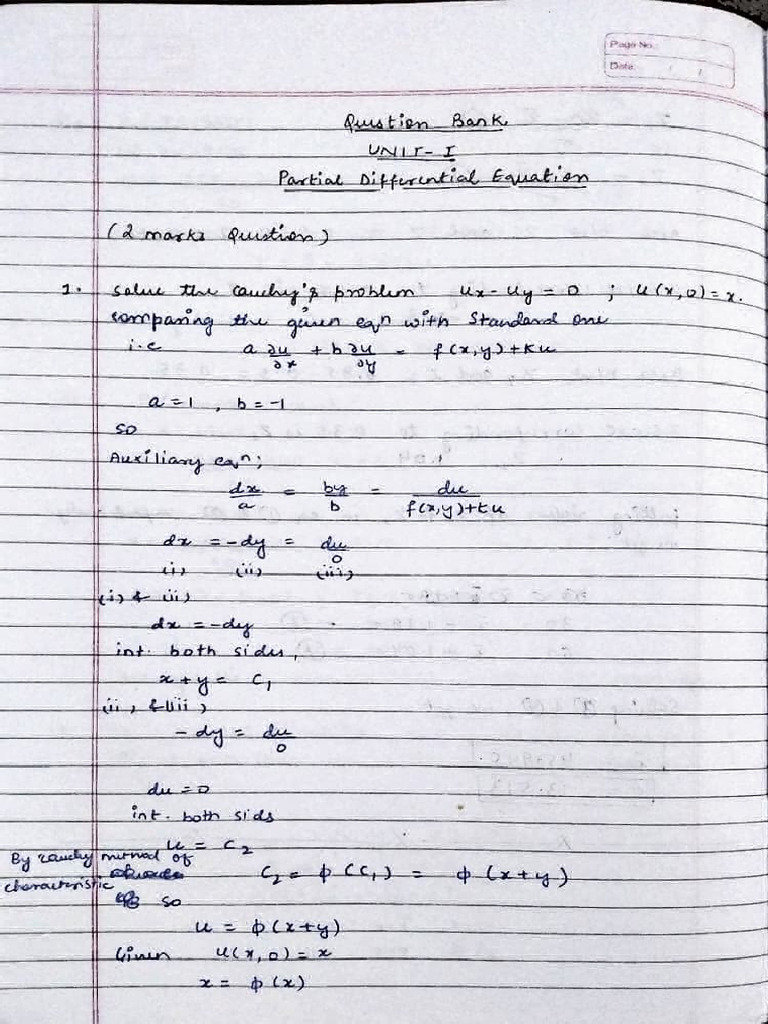 Page No.:
Date: / /
Question Bank
UNIT-I
Partial Differential Equation
(2 marks Question)
1. Solve the cauchy's problem ux - uy = 0 ; u(x,0) = x.
comparing the given eqn with Standard one
i.e a ∂u/∂x + b ∂u/∂y = f(x,y)+Ku
a = 1 , b = -1
so
Auxiliary eqn;
dx/a = by/b = du/f(x,y)+Ku
dx = -dy = du/0
(i) (ii) (iii)
(i) & (ii)
dx = -dy
int. both sides,
x + y = C1
(ii) & (iii)
- dy = du/0
du = 0
int. both sids
u = C2
By cauchy method of
characteristic C2 = ϕ (C1) = ϕ (x+y)
so
u = ϕ(x+y)
Given u(x,0) = x
x = ϕ(x)